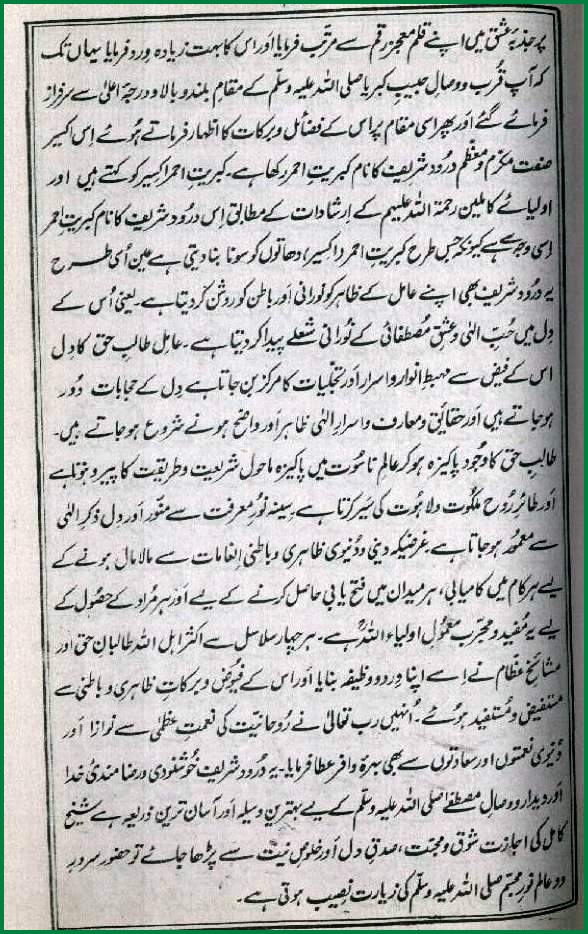 پر جذبۂ عشق میں اپنے قلم معجز رقم سے مرتب فرمایا اور اس کا بہت زیادہ ورد فرمایا یہاں تک
کہ آپ قُرب و وصالِ حبیبِ کبریا صلی اللہ علیہ وسلّم کے مقامِ بلند و بالا و درجۂ اعلیٰ سے سرفراز
فرمائے گئے اور پھر اسی مقام پر اس کے فضائل و برکات کا اظہار فرماتے ہوئے اِس اکسیر
صفت مکرّم و معظّم درُود شریف کا نام کبریتِ احمر رکھا ہے۔ کبریتِ احمر اکسیر کو کہتے ہیں اور
اولیائے کاملین رحمۃ اللہ علیہم کے اِرشادات کے مطابق اِس درُود شریف کا نام کبریتِ احمر
اِسی وجہ سے ہے کیونکہ جس طرح کبریتِ احمر (اکسیر) دھاتوں کو سونا بنا دیتی ہے عین اُسی طرح
یہ درُود شریف بھی اپنے عامل کے ظاہر کو نورانی اور باطن کو روشن کر دیتا ہے۔ یعنی اُس کے
دِل میں حُبِّ الٰہی و عشقِ مُصطفائی کے نُورانی شعلے پیدا کر دیتا ہے۔ عاملِ طالبِ حق کا دِل
اس کے فیض سے مہبطِ انوار و اسرار اَور تجلیات کا مرکز بن جاتا ہے دِل کے حجابات دُور
ہو جاتے ہیں اور حقائق و معارف و اسرارِ الٰہی ظاہر اور واضح ہونے شروع ہو جاتے ہیں۔
طالبِ حق کا وجُود پاکیزہ ہو کر عالمِ ناسُوت میں پاکیزہ ماحول شریعت و طریقت کا پیرو ہوتا ہے
اَور طائرِ رُوح ملکُوت و لاہُوت کی سَیر کرتا ہے۔ سِینہ نورِ معرفت سے منوّر اَور دِل ذِکرِ الٰہی
سے معمُور ہو جاتا ہے۔ غرضیکہ دینی و دُنیوی ظاہری و باطنی اِنعامات سے مالامال ہونے کے
لیے ہر کام میں کامیابی، ہر میدان میں فتح یابی حاصل کرنے کے لیے اَور ہر مُراد کے حصُول کے
لیے یہ مُفید و مجرّب معمُولِ اولیاء اللہؒ ہے۔ ہر چہار سلاسل سے اکثر اہل اللہ طالبانِ حق اور
مشائخِ عظام نے اِسے اپنا وِرد و وظیفہ بنایا اَور اس کے فیُوض و برکاتِ ظاہری و باطنی سے
مستفیض و مُستفید ہوئے۔ اُنہیں رب تعالیٰ نے رُوحانیّت کی نعمتِ عظمٰی سے نوازا اَور
دُنیوی نعمتوں اور سعادتوں سے بھی بہرۂ وافر عطا فرمایا۔ یہ درُود شریف خُوشنُودی و رضا مندیٔ خُدا
اَور دیدار و وصالِ مصطفٰے صلی اللہ علیہ وسلّم کے لیے بہترین وسیلہ اَور آسان ترین ذریعہ ہے شیخِ
کامل کی اجازت شوق و محبّت، صدقِ دِل اَور خلُوصِ نیت سے پڑھا جائے تو حضور سرورِ
دو عالم نورِ مجسّم صلی اللہ علیہ وسلّم کی زیارت نصِیب ہوتی ہے۔